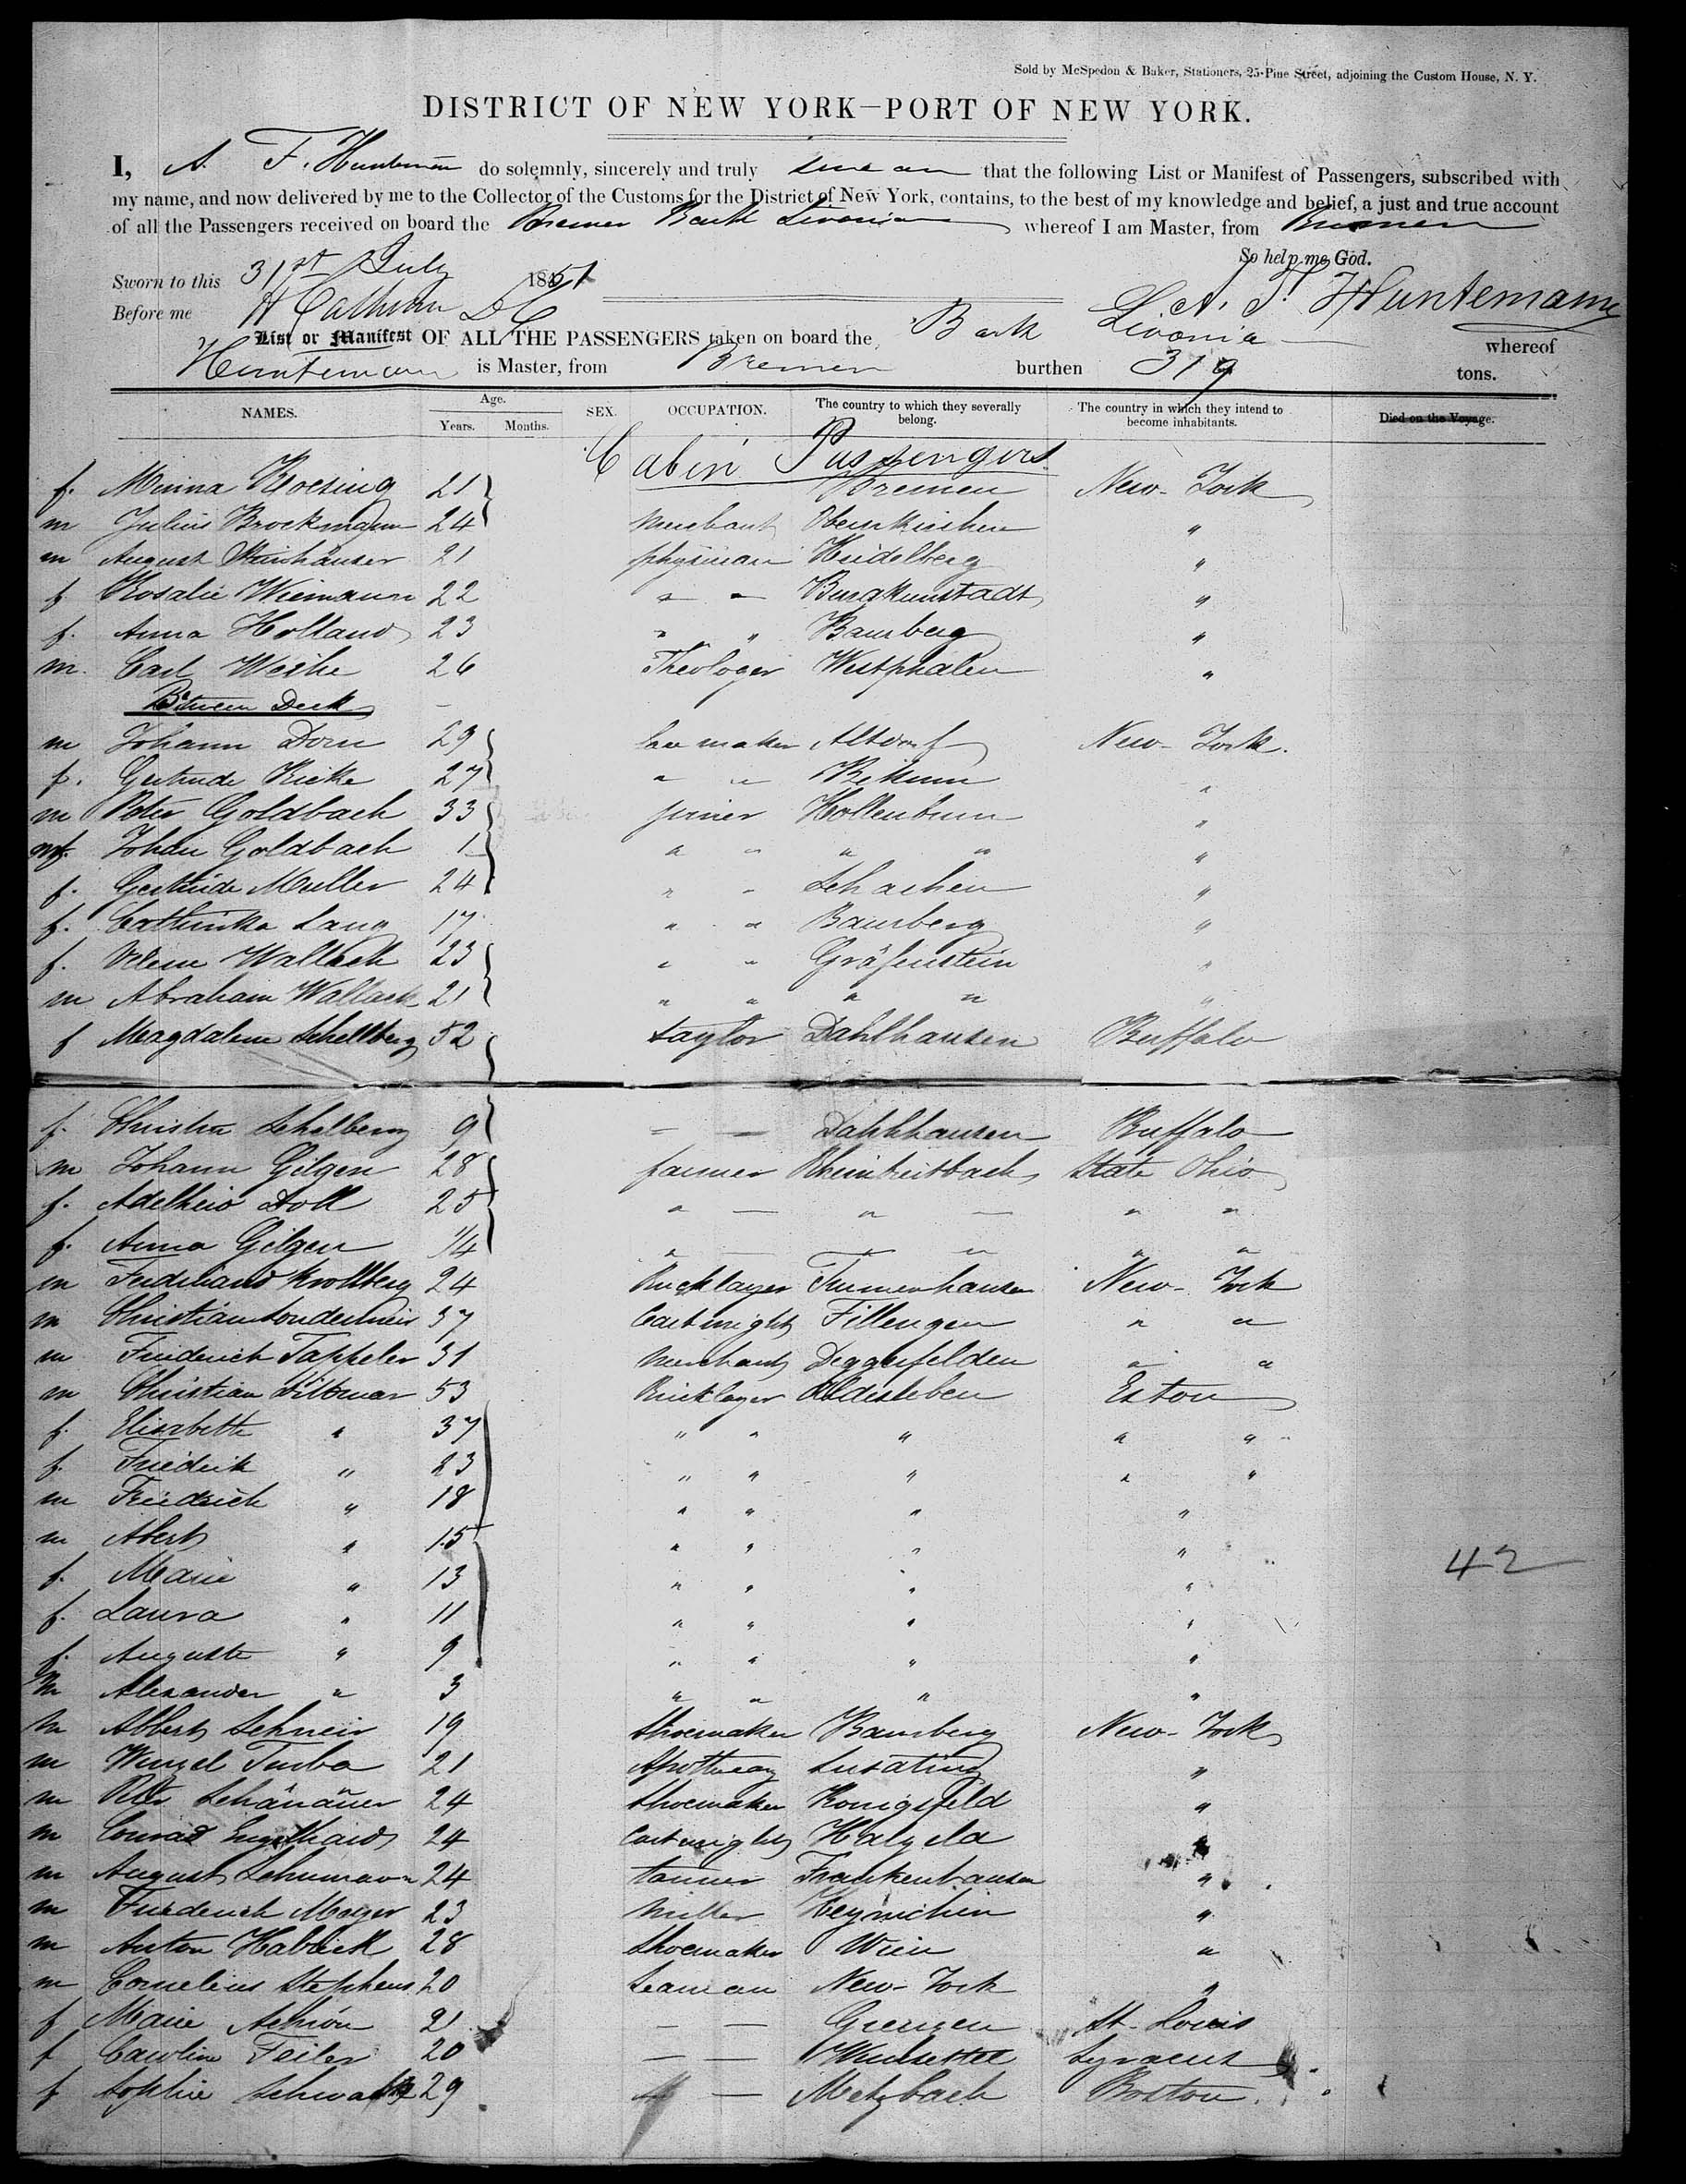 Sold by McSpedon & Baker, Stationers, 25 Pine Street, adjoining the Custom House, N. Y.
DISTRICT OF NEW YORK—PORT OF NEW YORK.
I, A. F. Huntemann do solemnly, sincerely and truly swear that the following List or Manifest of Passengers, subscribed with
my name, and now delivered by me to the Collector of the Customs for the District of New York, contains, to the best of my knowledge and belief, a just and true account
of all the Passengers received on board the Bremer Bark Livonia whereof I am Master, from Bremen
So help me God.
Sworn to this 31st July 1851
A. F. Huntemann
Before me Calhoun
List or Manifest OF ALL THE PASSENGERS taken on board the Bark Livonia whereof
Huntemann is Master, from Bremen burthen 319 tons.
NAMES. Age. Years. Months. SEX. OCCUPATION. The country to which they severally belong. The country in which they intend to become inhabitants. Died on the Voyage.
Cabin Passengers
f. Minna Hoesing 21 Bremen New-York
m Julius Brockmann 24 merchant Obernkirchen "
m August Steinhäuser 21 physician Heidelberg "
f Rosalie Wiemann 22 " " Burgkunstadt "
f. Anna Holland 23 " " Bamberg "
m. Carl Weihe 26 Theologer Westphalen "
Between Deck
m Johann Dorn 29 maker Altdorf New-York.
f. Gertrude Kicke 27 " " "
m Peter Goldbach 33 joiner Hollenbrun "
Johan Goldbach 1 " " " " "
f. Gertrude Muller 24 " " Schachen "
f. Cathinka Lang 17 " " Bamberg "
f. Wallach 23 " " Gräfenstein "
m Abraham Wallach 21 " " " " "
f Magdalene Schellberg 52 taylor Dahlhausen Buffalo
f. Christin Schelberg 9 — — Dahlhausen Buffalo
m Johann Gilgen 28 farmer Rheinbreitbach State Ohio
f. Adelheid Doll 25 " — " — " "
f. Anna Gilgen 1/4 " — " " "
m Ferdinand Krollberg 24 Bricklayer New-York
m Christian 37 Cartwright Fillengen " "
m Friederich Tappeler 31 merchant Deggenfelden " "
m Christian Dittmar 53 Bricklayer Oldisleben Eston
f. Elisabeth " 37 " " " " "
f. Friedrik " 23 " " " " "
m Friedrich " 18 " " " "
m Albert " 15 " " " "
f. Marie " 13 " " " "
42
f. Laura " 11 " " " "
f. Auguste " 9 " " " "
m Alexander " 3 " " " "
m Albert Schneir 19 Shoemaker Bamberg New-York
m Wenzel Turba 21 Apothecary "
m Peter Schänäuer 24 Shoemaker Konigsfeld "
m Conrad Engelhard 24 Cartwright "
m August Schumann 24 tanner Frankenhausen "
m Friederich Mayer 23 Miller "
m Anton Habrick 28 Shoemaker Wien "
m Cornelius Stephens 20 Seaman New-York "
f Marie Schrön 21 — — St. Louis
f Caroline Feiler 20 — — Syracus
f Sophie 29 — Metzbach Boston.